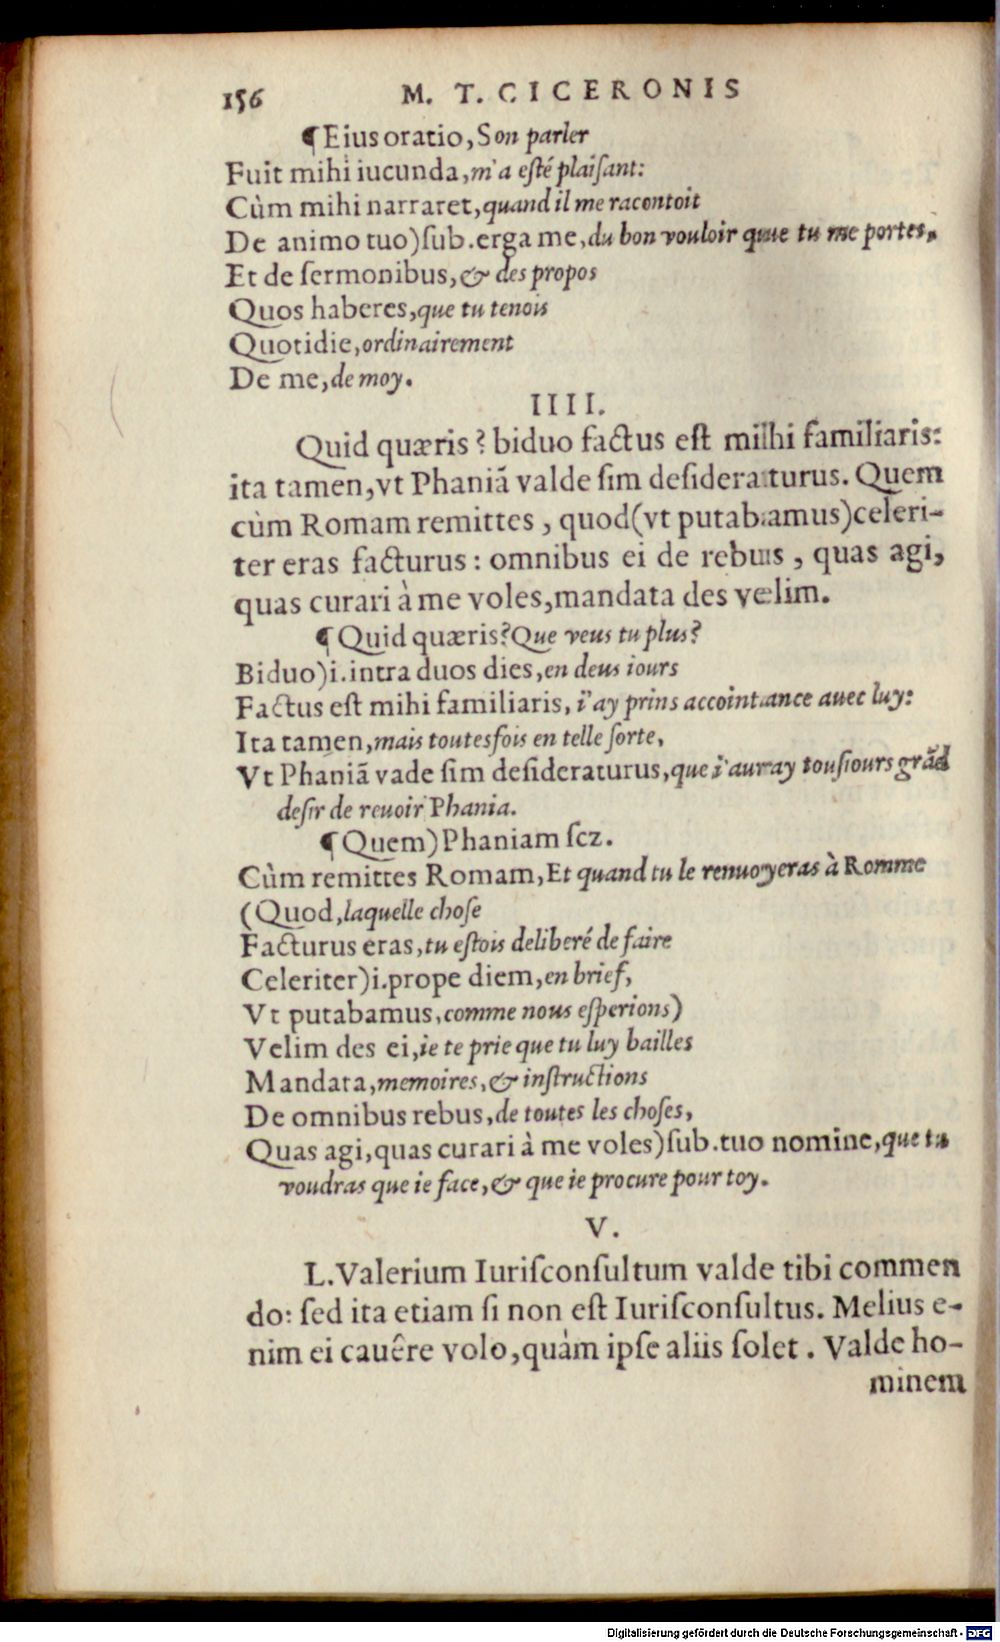 156 M. T. CICERONIS
¶Eius oratio, Son parler
Fuit mihi iucunda, m'a esté plaiſant:
Cùm mihi narraret, quand il me racontoit
De animo tuo)ſub. erga me, du bon vouloir que tu me portes,
Et de ſermonibus, & des propos
Quos haberes, que tu tenois
Quotidie, ordinairement
De me, de moy.
IIII.
Quid quæris? biduo factus eſt mihi familiaris:
ita tamen, vt Phaniā valde ſim deſideraturus. Quem
cùm Romam remittes, quod(vt putabamus)celeri-
ter eras facturus: omnibus ei de rebus, quas agi,
quas curari à me voles, mandata des velim.
¶Quid quæris? Que veus tu plus?
Biduo)i. intra duos dies, en deus iours
Factus eſt mihi familiaris, i'ay prins accointance auec luy:
Ita tamen, mais toutesfois en telle ſorte,
Vt Phaniā vade ſim deſideraturus, que i'auray touſiours grād
deſir de reuoir Phania.
¶Quem)Phaniam ſcz.
Cùm remittes Romam, Et quand tu le renuoyeras à Romme
(Quod, laquelle choſe
Facturus eras, tu eſtois deliberé de faire
Celeriter)i. prope diem, en brief,
Vt putabamus, comme nous eſperions)
Velim des ei, ie te prie que tu luy bailles
Mandata, memoires, & inſtructions
De omnibus rebus, de toutes les choſes,
Quas agi, quas curari à me voles)ſub. tuo nomine, que tu
voudras que ie face, & que ie procure pour toy.
V.
L. Valerium Iuriſconſultum valde tibi commen
do: ſed ita etiam ſi non eſt Iuriſconſultus. Melius e-
nim ei cauêre volo, quàm ipſe aliis ſolet. Valde ho-
minem
Digitalisierung gefördert durch die Deutsche Forschungsgemeinschaft - DFG